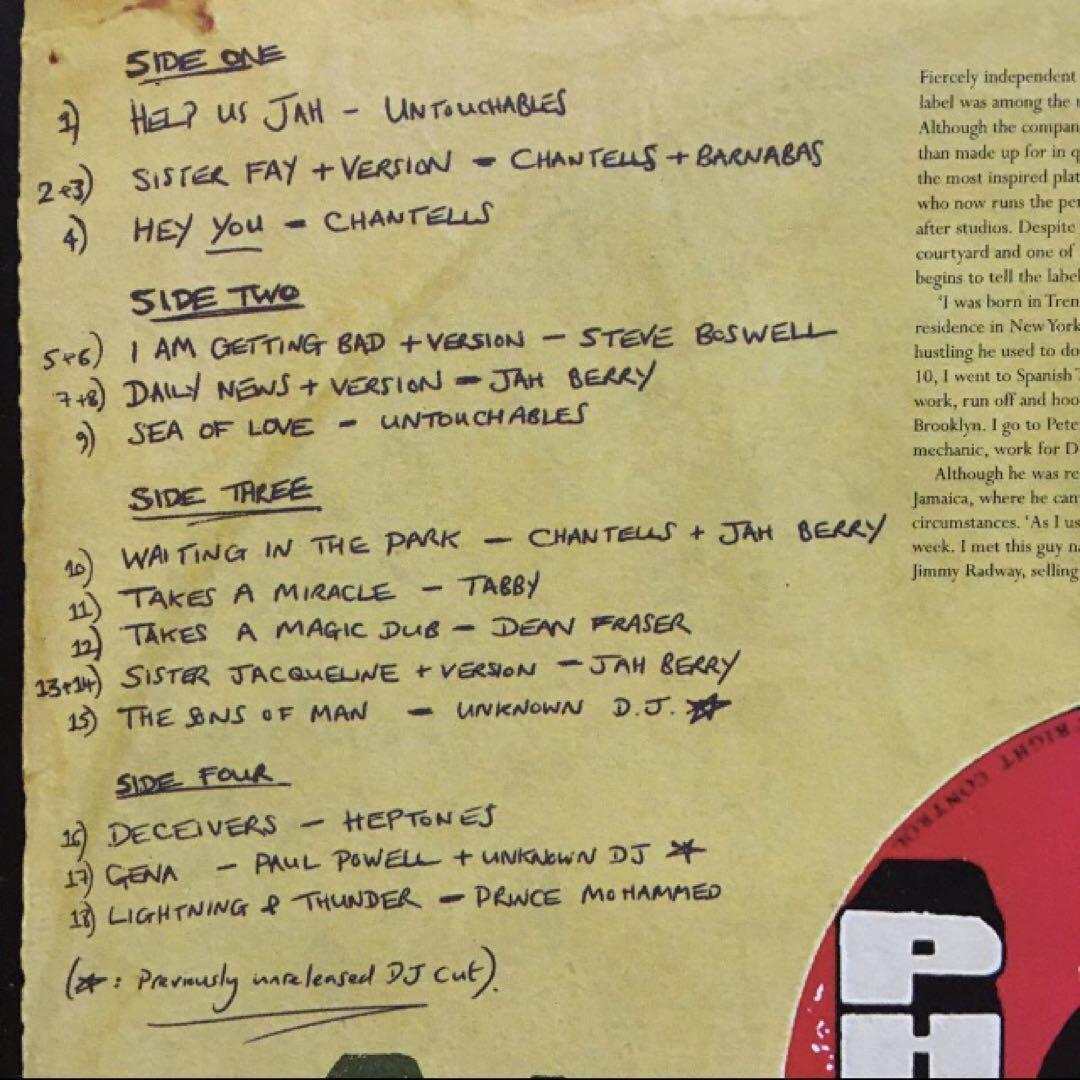 SIDE ONE
1) HELP US JAH - UNTOUCHABLES
2+3) SISTER FAY + VERSION - CHANTELLS + BARNABAS
4) HEY YOU - CHANTELLS
SIDE TWO
5+6) I AM GETTING BAD + VERSION - STEVE BOSWELL
7+8) DAILY NEWS + VERSION - JAH BERRY
9) SEA OF LOVE - UNTOUCHABLES
SIDE THREE
10) WAITING IN THE PARK - CHANTELLS + JAH BERRY
11) TAKES A MIRACLE - TABBY
12) TAKES A MAGIC DUB - DEAN FRASER
13+14) SISTER JACQUELINE + VERSION - JAH BERRY
15) THE SONS OF MAN - UNKNOWN D.J. ☆
SIDE FOUR
16) DECEIVERS - HEPTONES
17) GENA - PAUL POWELL + UNKNOWN DJ ☆
18) LIGHTNING & THUNDER - PRINCE MOHAMMED
(☆: Previously unreleased DJ cut).
Fiercely independent
label was among the
Although the compan
than made up for in q
the most inspired plat
who now runs the per
after studios. Despite
courtyard and one of
begins to tell the label
'I was born in Tren
residence in New York
hustling he used to do
10, I went to Spanish T
work, run off and hoo
Brooklyn. I go to Pete
mechanic, work for D
Although he was re
Jamaica, where he can
circumstances. 'As I us
week. I met this guy na
Jimmy Radway, selling
RIGHT CONTROL
P
H